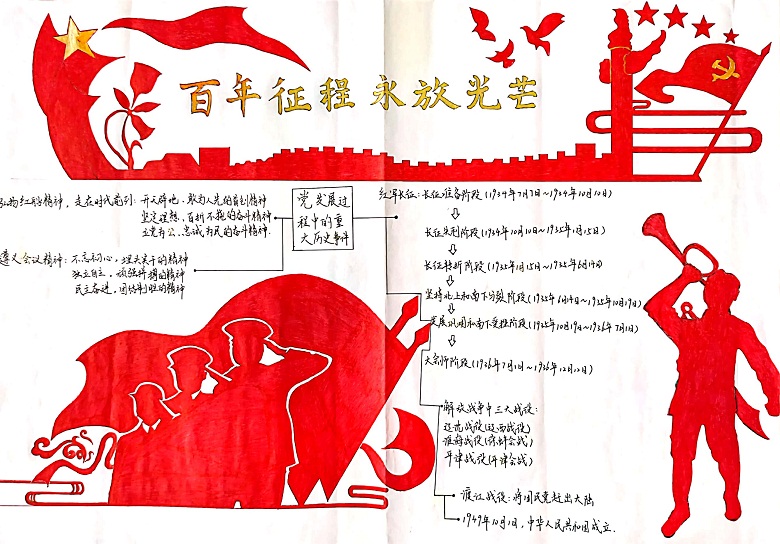 百年征程 永放光芒
弘扬红船精神，走在时代前列：开天辟地、敢为人先的首创精神
坚定理想、百折不挠的奋斗精神
立党为公、忠诚为民的奉献精神.
遵义会议精神：不忘初心，埋头实干的精神
独立自主，顽强拼搏的精神
民主奋进，团结制胜的精神
党发展过
程中的重
大历史事件
红军长征：长征准备阶段(1934年7月7日～1934年10月10日)
长征失利阶段(1934年10月10日～1935年1月15日)
长征转折阶段(1935年1月15日～1935年6月14日)
坚持北上和南下分裂阶段(1935年6月14日～1935年10月19日)
发展巩固和南下受挫阶段(1935年10月19日～1936年7月1日)
大会师阶段(1936年7月1日～1936年12月12日)
解放战争中三大战役：
辽沈战役(辽西战役)
淮海战役(徐蚌会战)
平津战役(平津会战)
渡江战役：将国民党赶出大陆
1949年10月1日，中华人民共和国成立.